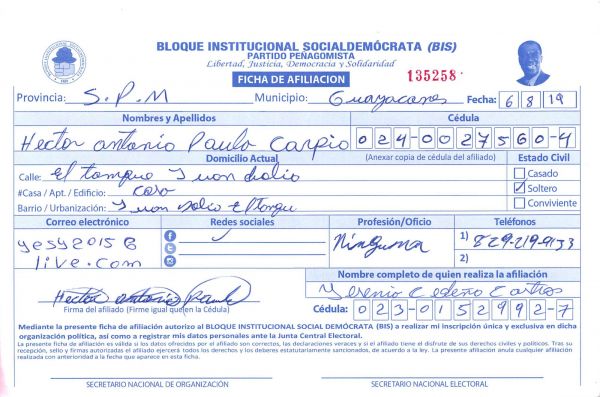 BLOQUE INSTITUCIONAL SOCIALDEMÓCRATA (BIS)
PARTIDO PEÑAGOMISTA
Libertad, Justicia, Democracia y Solidaridad
FICHA DE AFILIACION 135258
Provincia: S.P.M Municipio: Guayacanes Fecha: 6 8 19
Nombres y Apellidos Cédula
Hector antonio Paulo Carpio 024-0027560-4
Domicilio Actual (Anexar copia de cédula del afiliado) Estado Civil
Calle: El tanque Juan dolio Casado
#Casa / Apt. / Edificio: casa Soltero
Barrio / Urbanización: Juan dolio El tanque Conviviente
Correo electrónico Redes sociales Profesión/Oficio Teléfonos
yesy2015@ Ninguna 1) 829-219-9133
live.com 2)
Nombre completo de quien realiza la afiliación
Hector antonio Paulo Yesenia Cedeño Castro
Firma del afiliado (Firme igual que en la Cédula) Cédula: 023-0152992-7
Mediante la presente ficha de afiliación autorizo al BLOQUE INSTITUCIONAL SOCIAL DEMÓCRATA (BIS) a realizar mi inscripción única y exclusiva en dicha
organización política, así como a registrar mis datos personales ante la Junta Central Electoral.
La presente ficha de afiliación es válida si los datos ofrecidos por el afiliado son correctos, las declaraciones veraces y si el afiliado tiene el disfrute de sus derechos civiles y políticos. Tras su
recepción, sello y firmas autorizadas el afiliado ejercerá todos los derechos y los deberes estatutariamente sancionados, de acuerdo a la ley. La presente afiliación anula cualquier afiliación
realizada con anterioridad a la fecha que aparece en esta ficha.
SECRETARIO NACIONAL DE ORGANIZACIÓN SECRETARIO NACIONAL ELECTORAL